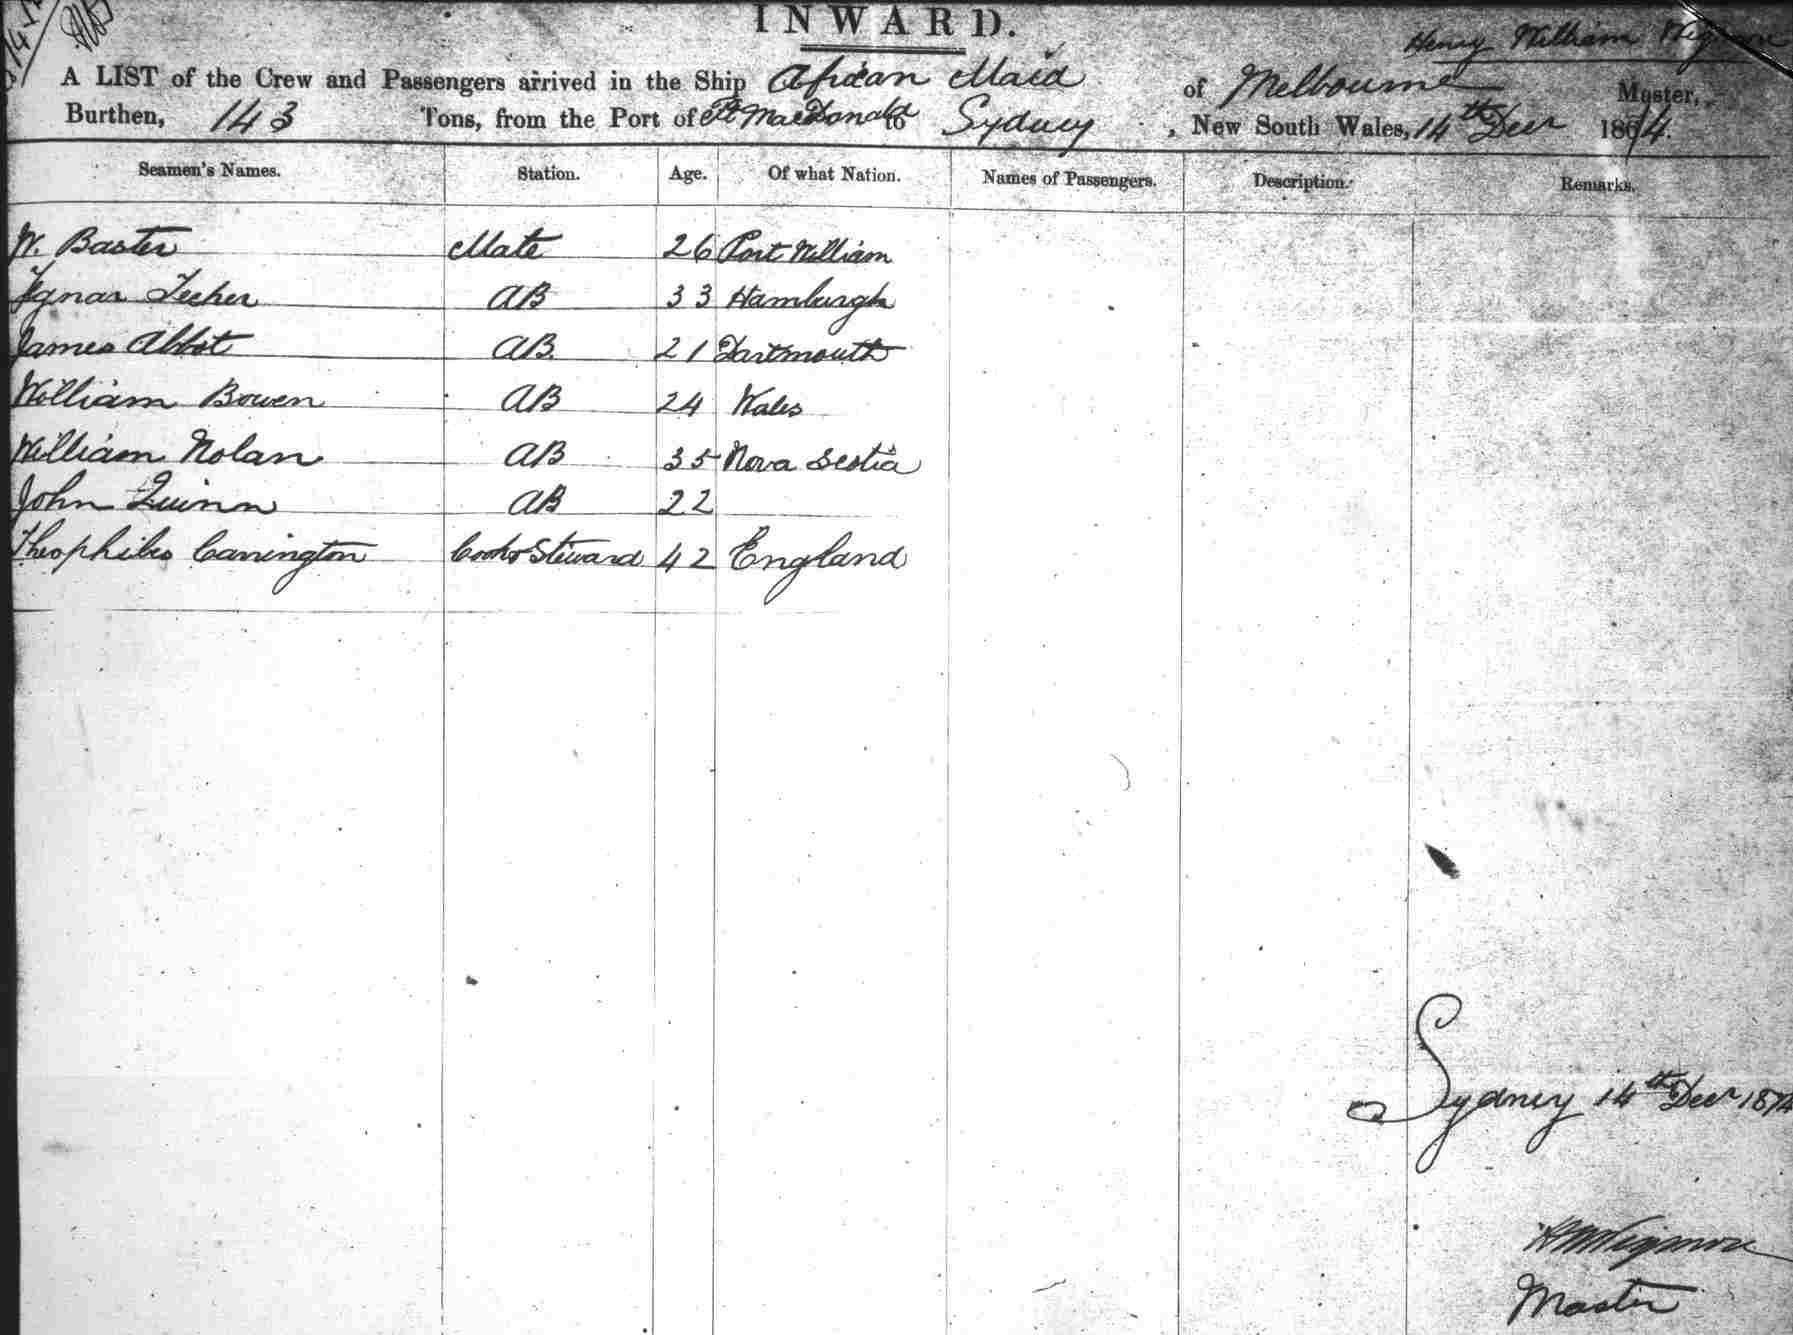 INWARD.
Henry William
A LIST of the Crew and Passengers arrived in the Ship African Maid of Melbourne Master,
Burthen, 143 Tons, from the Port of Pt MacDonald to Sydney, New South Wales, 14th Decr 1874.
Seamen's Names. Station. Age. Of what Nation. Names of Passengers. Description. Remarks.
W. Baster Mate 26 Port William
AB 33 Hamburgh
James Abbot AB 21 Dartmouth
William Bowen AB 24 Wales
William Nolan AB 35 Nova Scotia
John Quinn AB 22
Theophilus Carrington Cook & Steward 42 England
Sydney 14th Decr 1874
Master